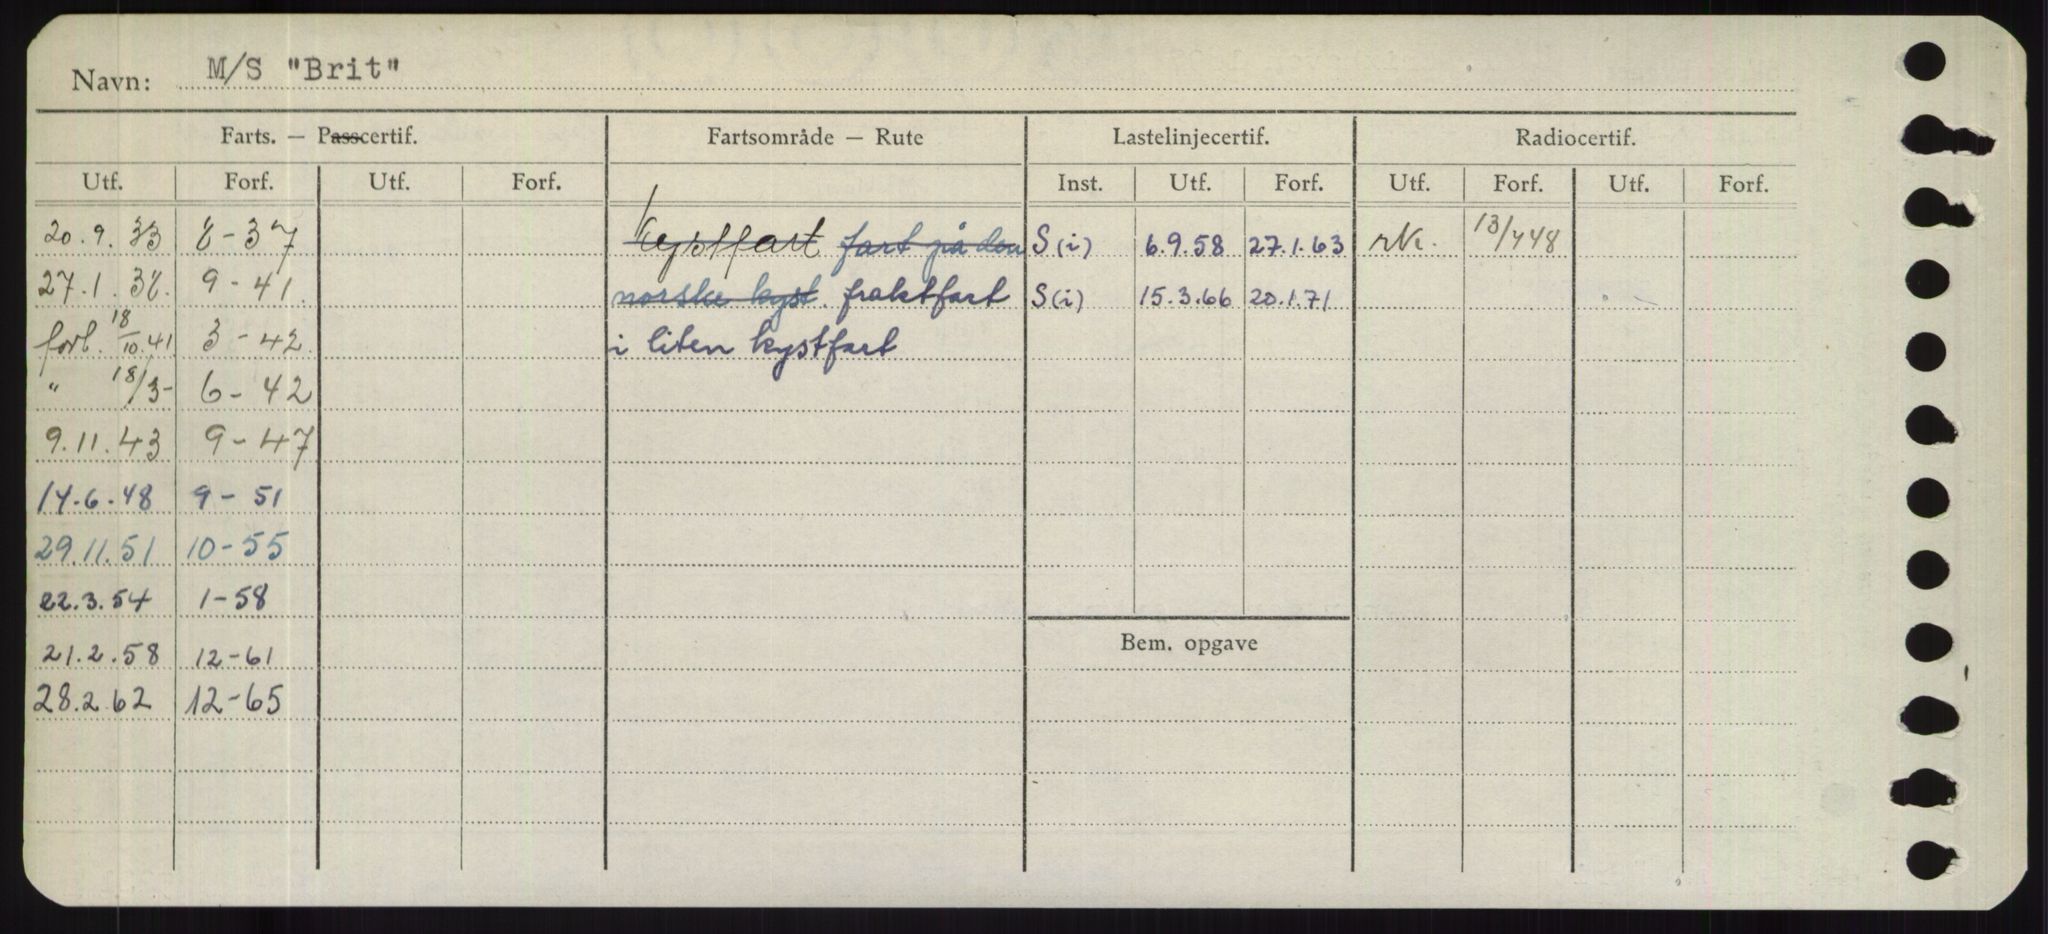 Navn: M/S "Brit"
Farts. — Passcertif. Fartsområde — Rute Lastelinjecertif. Radiocertif.
Utf. Forf. Utf. Forf. Inst. Utf. Forf. Utf. Forf. Utf. Forf.
20.9.33 8-37 Kystfart fart på den S(i) 6.9.58 27.1.63 13/448
27.1.38. 9-41. norske kyst. fraktfart S(i) 15.3.66 20.1.71
forl. 18/10.41 3-42 i liten kystfart
" 18/3- 6-42
9.11.43 9-47
14.6.48 9-51
29.11.51 10-55
22.3.54 1-58
Bem. opgave
21.2.58 12-61
28.2.62 12-65